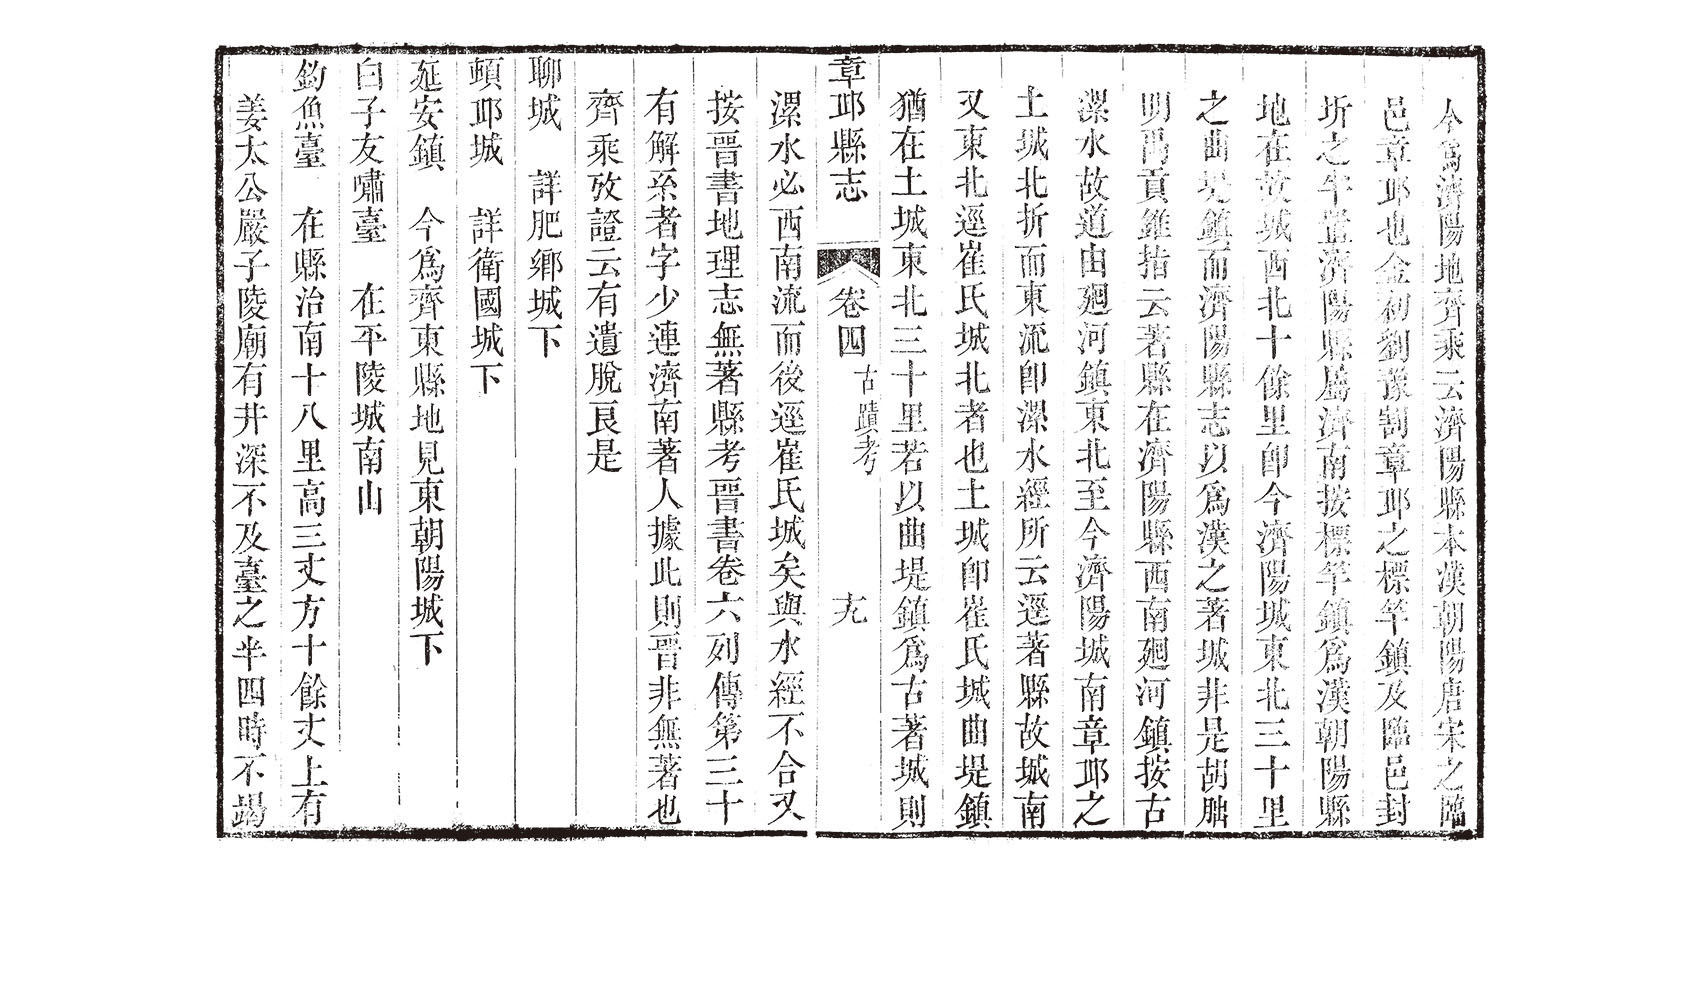 今爲濟陽地齊乘云濟陽縣本漢朝陽唐宋之臨
邑章邱也金初劉豫割章邱之標竿鎮及臨邑封
圻之半置濟陽縣屬濟南按標竿鎮爲漢朝陽縣
地在故城西北十餘里卽今濟陽城東北三十里
之曲堤鎮而濟陽縣志以爲漢之著城非是胡朏
明禹貢錐指云著縣在濟陽縣西南廻河鎮按古
漯水故道由廻河鎮東北至今濟陽城南章邱之
土城北折而東流卽漯水經所云逕著縣故城南
又東北逕崔氏城北者也土城卽崔氏城曲堤鎮
猶在土城東北三十里若以曲堤鎮爲古著城則
章邱縣志 卷四 古蹟考 十九
漯水必西南流而後逕崔氏城矣與水經不合又
按晉書地理志無著縣考晉書卷六列傳第三十
有解系者字少連濟南著人據此則晉非無著也
齊乘攷證云有遺脫良是
聊城 詳肥鄉城下
頓邱城 詳衛國城下
延安鎮 今爲齊東縣地見東朝陽城下
白子友嘯臺 在平陵城南山
釣魚臺 在縣治南十八里高三丈方十餘丈上有
姜太公嚴子陵廟有井深不及臺之半四時不竭